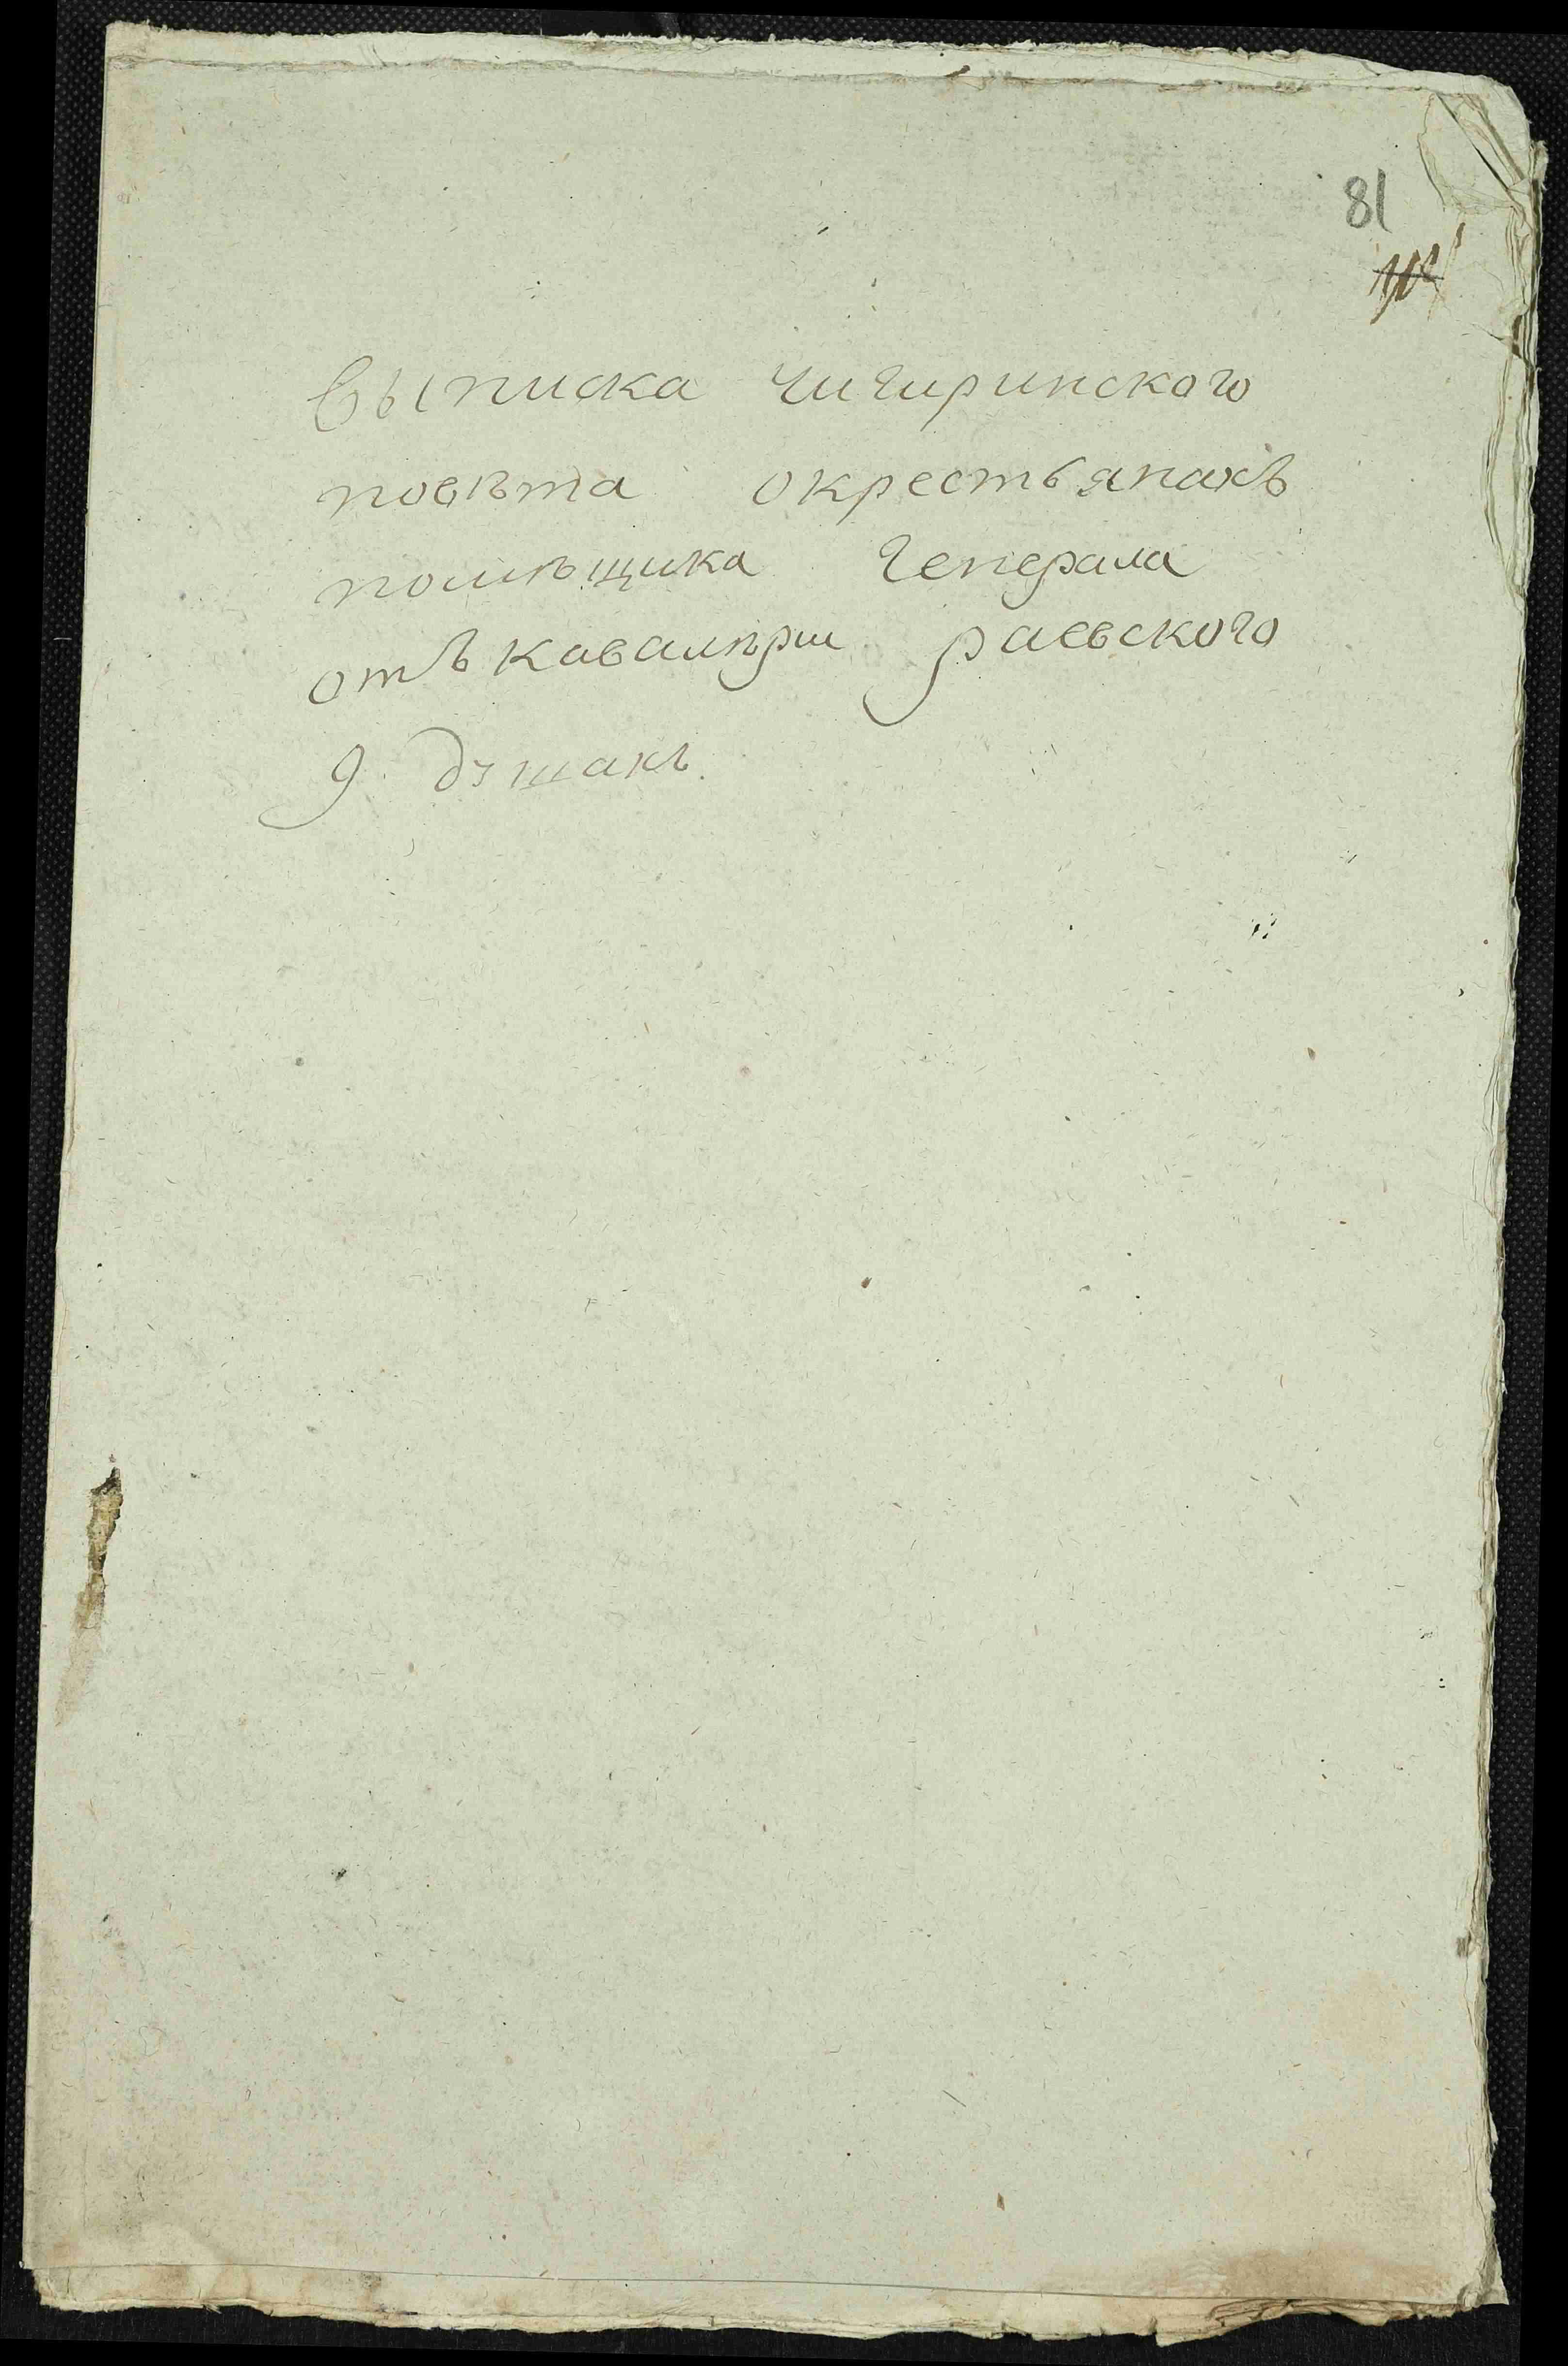 81
выписка чигиринского
повѣта окрестьянахъ
помѣщика Генерала
отъ кавалѣрии раевского
9. душахъ.